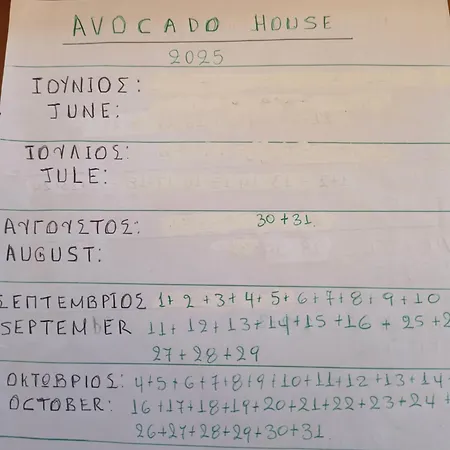 AVOCADO HOUSE
2025
ΙΟΥΝΙΟΣ:
JUNE:
ΙΟΥΛΙΟΣ:
JULE:
ΑΥΓΟΥΣΤΟΣ: 30+31
AUGUST:
ΣΕΠΤΕΜΒΡΙΟΣ 1+2+3+4+5+6+7+8+9+10
SEPTEMBER 11+12+13+14+15+16+25+
27+28+29
ΟΚΤΩΒΡΙΟΣ: 4+5+6+7+8+9+10+11+12+13+14+
OCTOBER: 16+17+18+19+20+21+22+23+24+
26+27+28+29+30+31